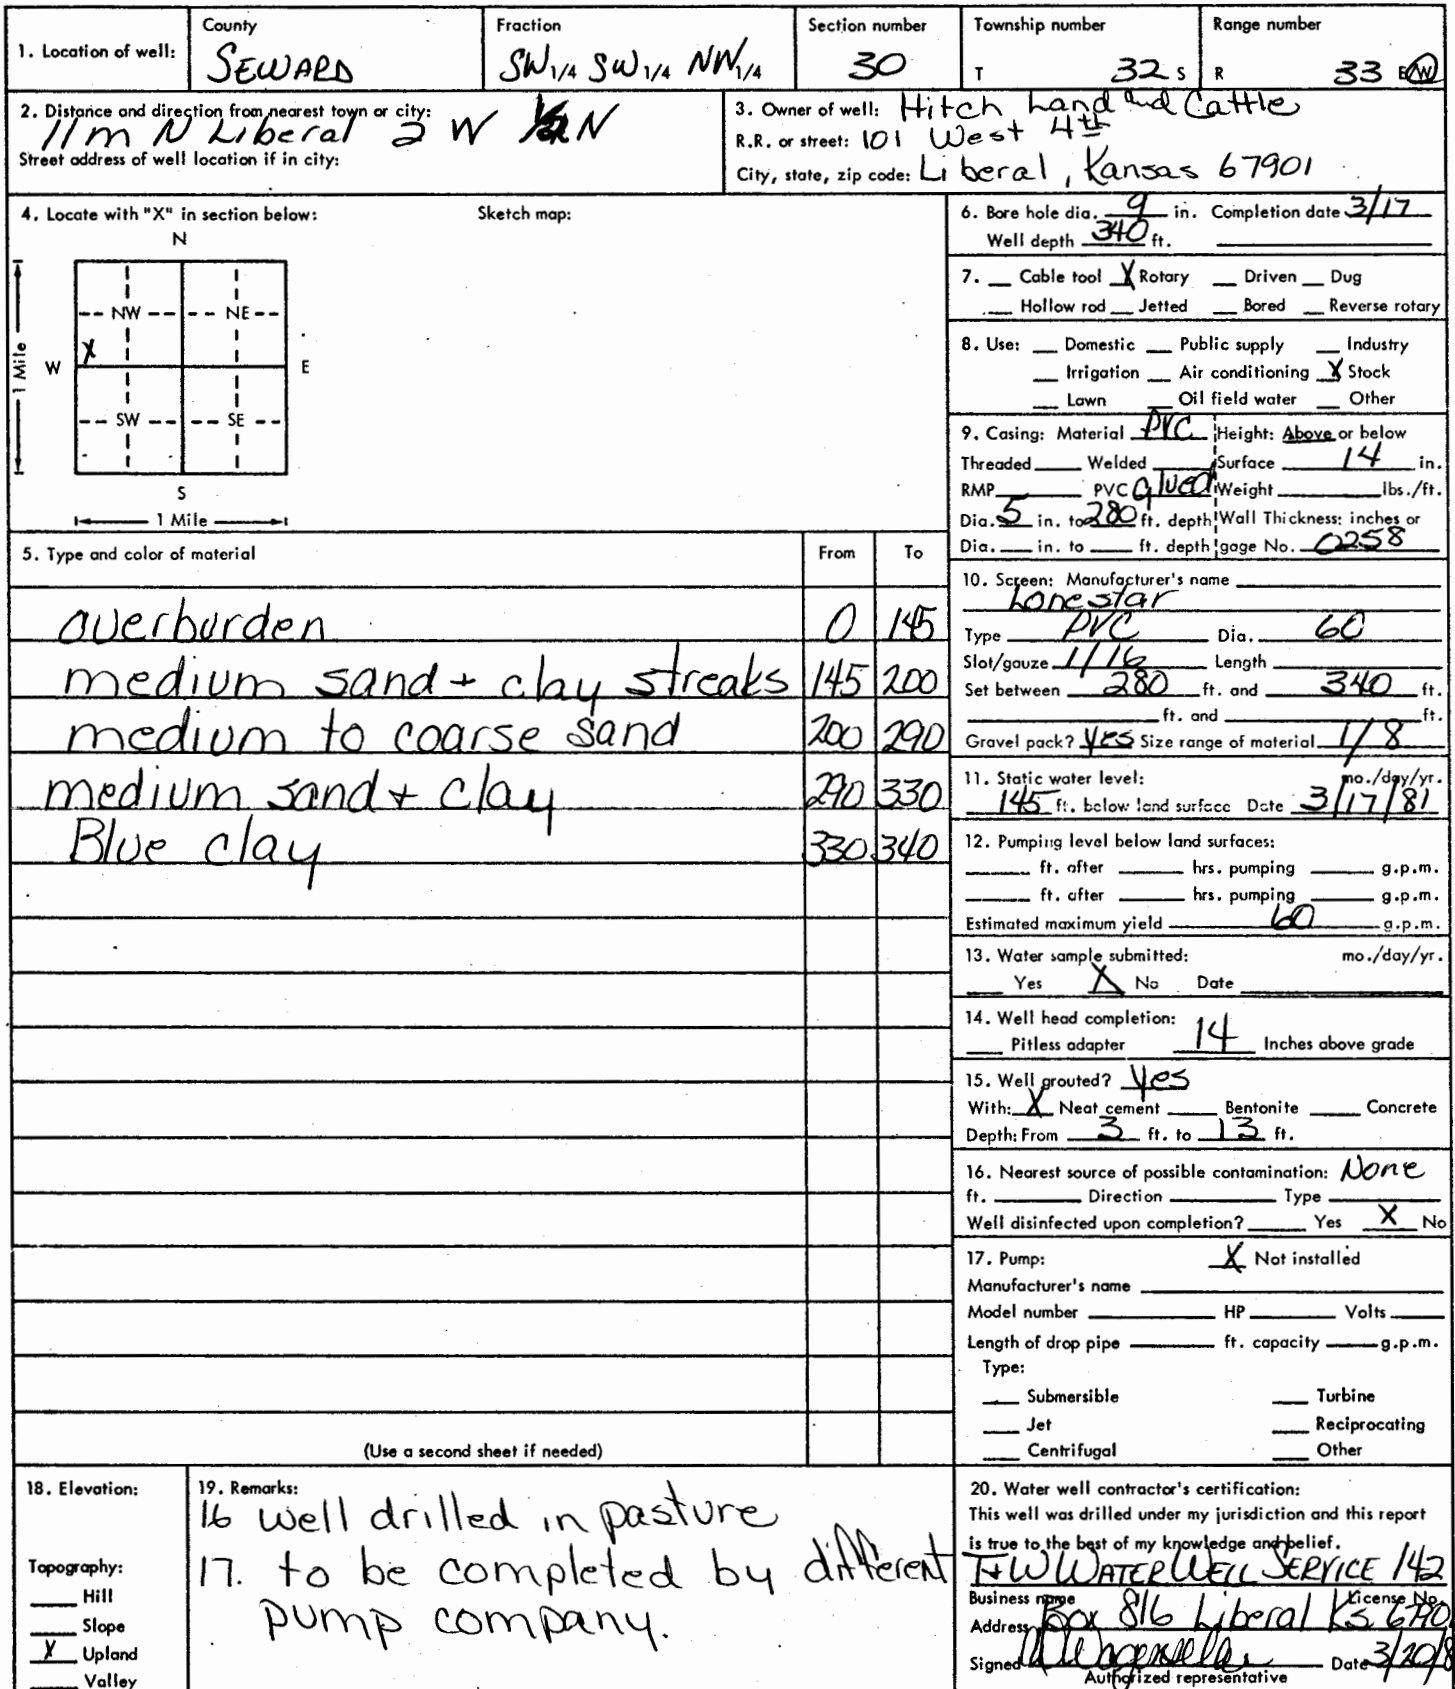 1. Location of well: County SEWARD Fraction SW 1/4 SW 1/4 NW 1/4 Section number 30 Township number T 32 S Range number R 33 E/W
2. Distance and direction from nearest town or city: 11 m N Liberal 2 W 1/2 N
Street address of well location if in city:
3. Owner of well: Hitch Land and Cattle
R.R. or street: 101 West 4th
City, state, zip code: Liberal, Kansas 67901
4. Locate with "X" in section below: Sketch map:
N
NW NE
X
W E
SW SE
S
1 Mile
1 Mile
5. Type and color of material From To
overburden 0 145
medium sand + clay streaks 145 200
medium to coarse sand 200 290
medium sand + clay 290 330
Blue clay 330 340
(Use a second sheet if needed)
6. Bore hole dia. 9 in. Completion date 3/17
Well depth 340 ft.
7. Cable tool X Rotary Driven Dug
Hollow rod Jetted Bored Reverse rotary
8. Use: Domestic Public supply Industry
Irrigation Air conditioning X Stock
Lawn Oil field water Other
9. Casing: Material PVC Height: Above or below
Threaded Welded Surface 14 in.
RMP PVC glued Weight lbs./ft.
Dia. 5 in. to 280 ft. depth Wall Thickness: inches or
Dia. in. to ft. depth gage No. 0258
10. Screen: Manufacturer's name
Lonestar
Type PVC Dia. 60
Slot/gauze 1/16 Length
Set between 280 ft. and 340 ft.
ft. and ft.
Gravel pack? yes Size range of material 1/8
11. Static water level: mo./day/yr.
145 ft. below land surface Date 3/17/81
12. Pumping level below land surfaces:
ft. after hrs. pumping g.p.m.
ft. after hrs. pumping g.p.m.
Estimated maximum yield 60 g.p.m.
13. Water sample submitted: mo./day/yr.
Yes X No Date
14. Well head completion:
Pitless adapter 14 Inches above grade
15. Well grouted? yes
With: X Neat cement Bentonite Concrete
Depth: From 3 ft. to 13 ft.
16. Nearest source of possible contamination: None
ft. Direction Type
Well disinfected upon completion? Yes X No
17. Pump: X Not installed
Manufacturer's name
Model number HP Volts
Length of drop pipe ft. capacity g.p.m.
Type:
Submersible Turbine
Jet Reciprocating
Centrifugal Other
18. Elevation:
Topography:
Hill
Slope
X Upland
Valley
19. Remarks:
16 well drilled in pasture
17. to be completed by different
pump company.
20. Water well contractor's certification:
This well was drilled under my jurisdiction and this report
is true to the best of my knowledge and belief.
T+W WATER WELL SERVICE 142
Business name License No.
Address Box 816 Liberal Ks 6790
Signed Date 3/20/8
Authorized representative